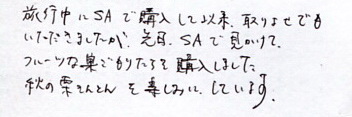 旅行中にSAで購入して以来、取りよせでも
いただきましたが、先日、SAで見かけて、
フルーツな巣ごもりたまを購入しました
秋の栗きんとんを楽しみにしています。